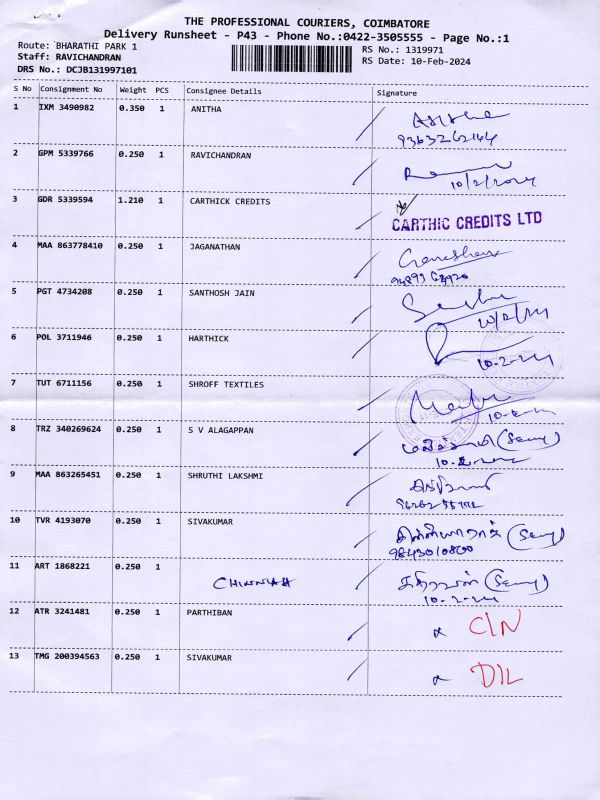 THE PROFESSIONAL COURIERS, COIMBATORE
Delivery Runsheet - P43 - Phone No.:0422-3505555 - Page No.:1
Route: BHARATHI PARK 1 RS No.: 1319971
Staff: RAVICHANDRAN RS Date: 10-Feb-2024
DRS No.: DCJB131997101
S No Consignment No Weight PCS Consignee Details Signature
1 IXM 3490982 0.350 1 ANITHA
2 GPM 5339766 0.250 1 RAVICHANDRAN
10/2/2024
3 GDR 5339594 1.210 1 CARTHICK CREDITS
CARTHIC CREDITS LTD
4 MAA 863778410 0.250 1 JAGANATHAN
5 PGT 4734208 0.250 1 SANTHOSH JAIN
6 POL 3711946 0.250 1 HARTHICK
10-2-24
7 TUT 6711156 0.250 1 SHROFF TEXTILES
8 TRZ 340269624 0.250 1 S V ALAGAPPAN
9 MAA 863265451 0.250 1 SHRUTHI LAKSHMI
10 TVR 4193070 0.250 1 SIVAKUMAR
9843010800
11 ART 1868221 0.250 1 CHINNIAH
10-2-24
12 ATR 3241481 0.250 1 PARTHIBAN CIN
13 TMG 200394563 0.250 1 SIVAKUMAR DIL